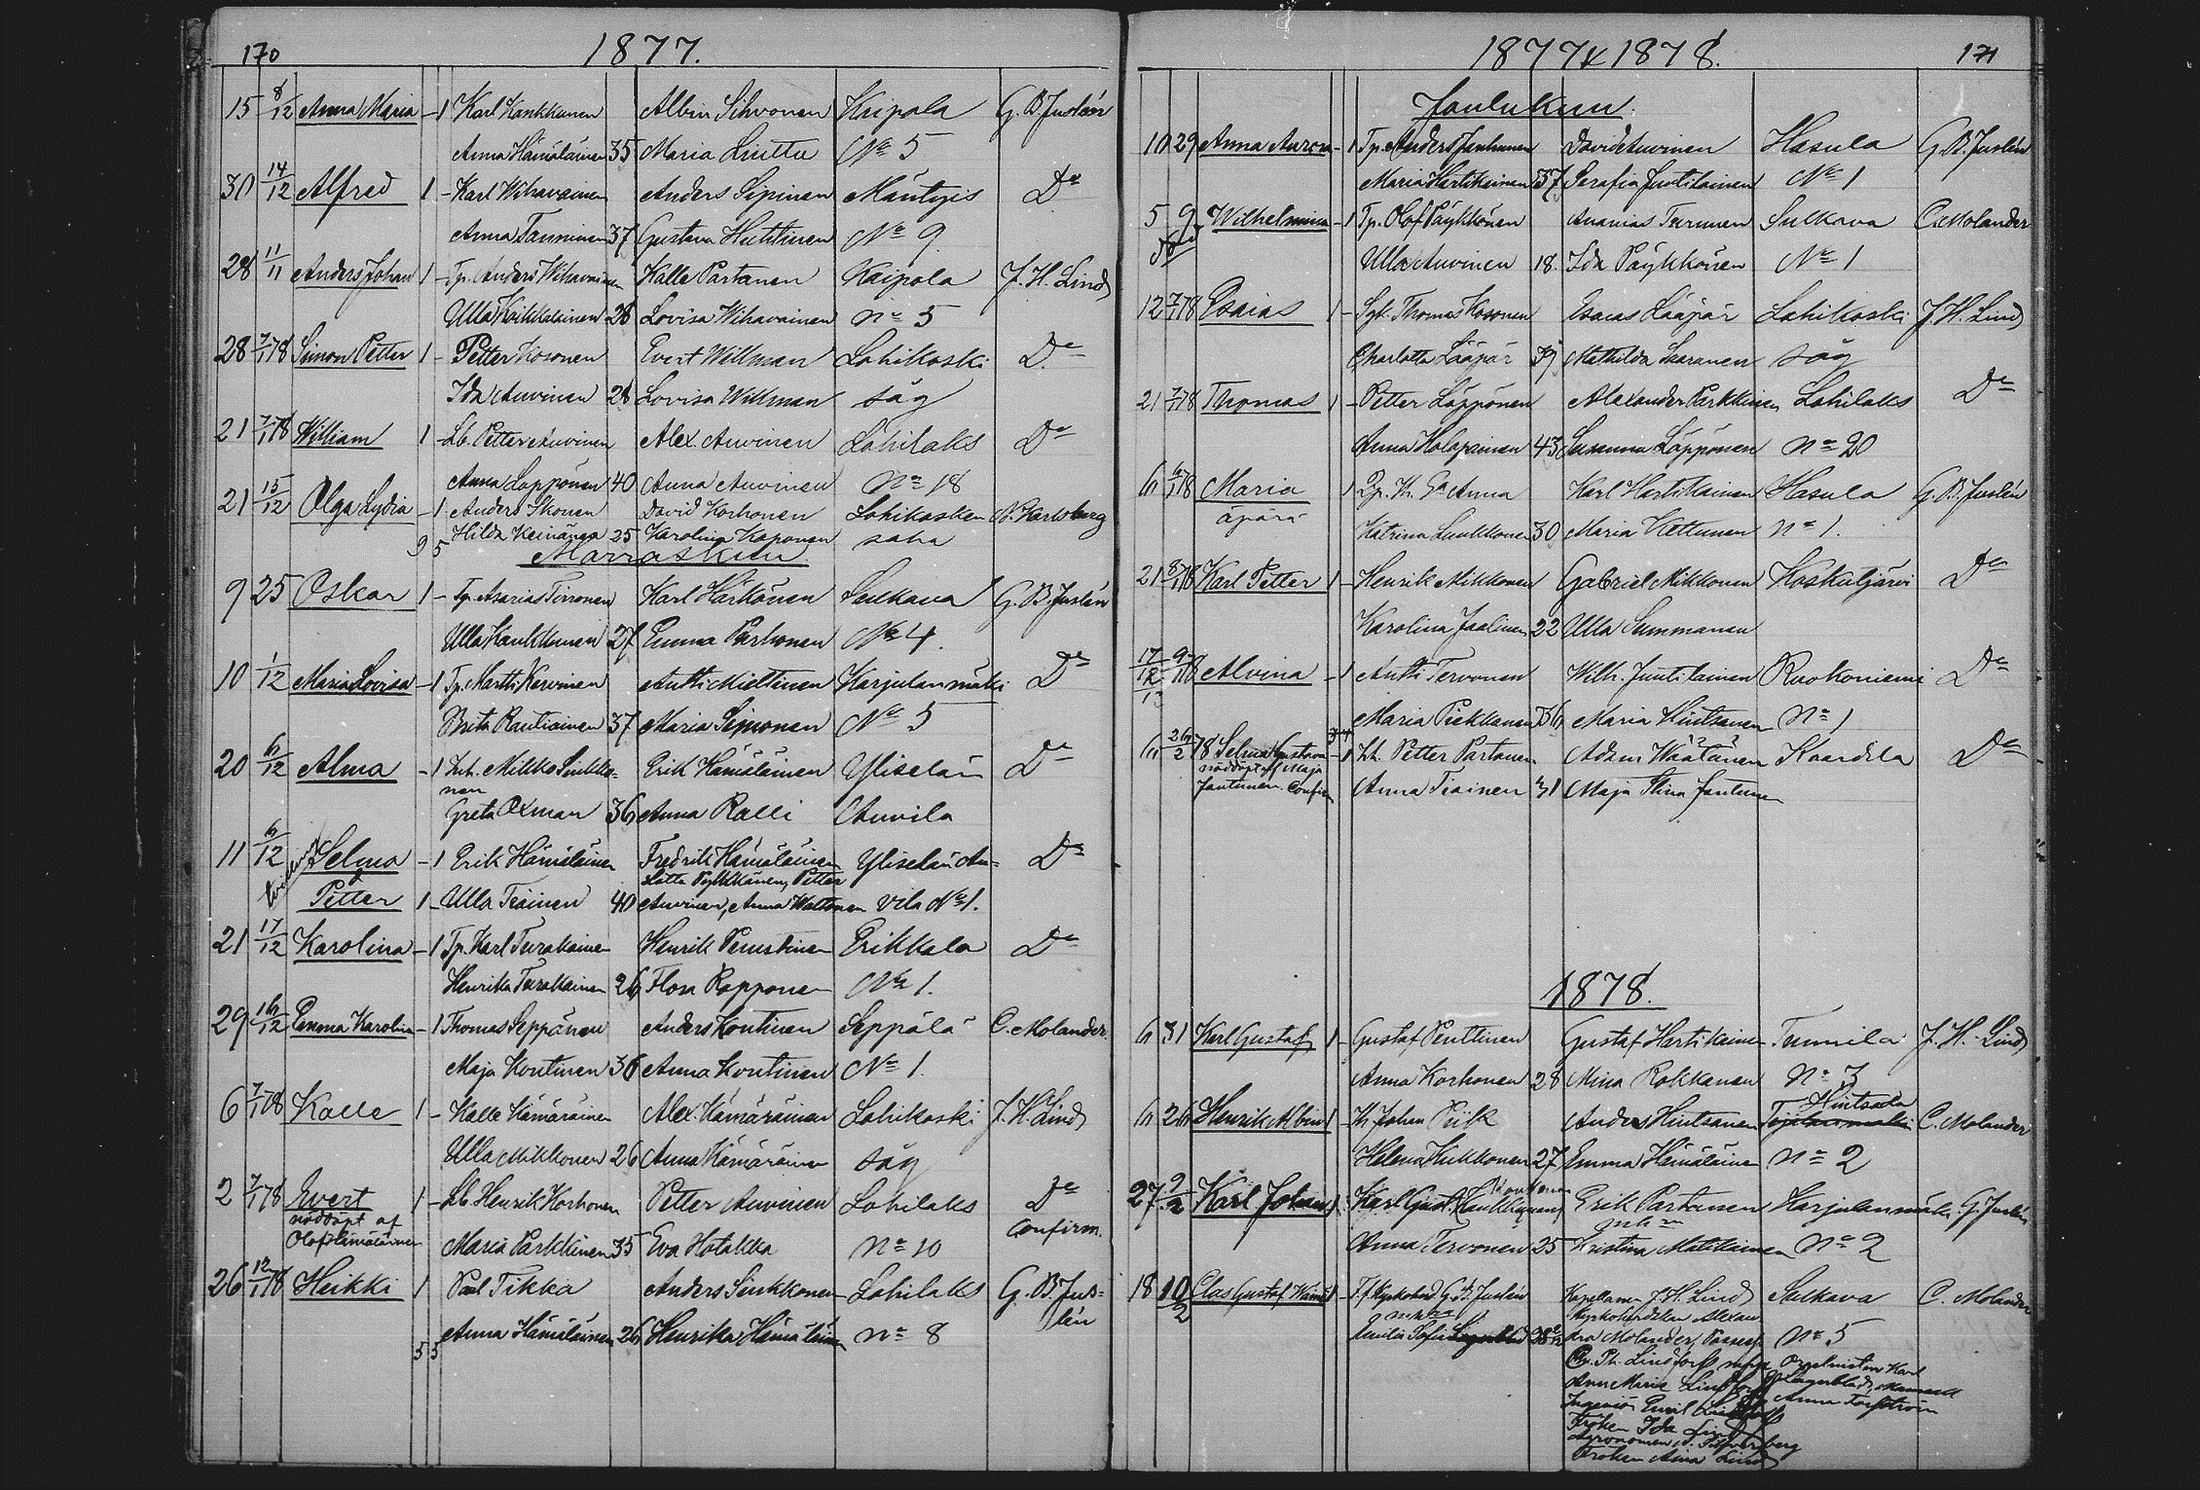 170 1877.
15 8/12 Anna Maria - 1 Karl Kankkunen Albin Sihvonen Kaipola G. B. Juslén
Anna Hämäläinen 35 Maria Liuttu No 5
30 14/12 Alfred 1 - Karl Wihavainen Anders Sipinen Mäntyis Do
Anna Tanninen 37 Gustava Huttinen No 9
28 11/11 Anders Johan 1 - Tp. Anders Wihavainen Kalle Partanen Kaipola J. H. Lind
Ulla Koikkalainen 28 Lovisa Wihavainen No 5
28 7/1 78 Simon Petter 1 - Petter Kosonen Evert Willman Lohikoski Do
Ida Auvinen 28 Lovisa Willman såg
21 7/1 78 William 1 - Lb. Petter Auvinen Alex. Auvinen Lohilaks Do
Anna Löppönen 40 Anna Auvinen No 18
21 15/12 Olga Lydia - 1 Anders Ikonen David Korhonen Lohikosken
Hilda Keinänen 25 Karolina Kaponen saha
95 Marraskuu
9 25 Oskar 1 - Tp. Asarias Tirronen Karl Härkönen Sulkava G. B. Juslén
Ulla Kankkunen 27 Emma Parhonen No 4.
10 1/12 Maria Lovisa - 1 Tp. Martti Kervinen Antti Miettinen Karjulanmäki Do
Brita Rautiainen 37 Maria Siponen No 5
20 6/12 Alma - 1 Inh. Mikko Sinkko- Erik Hämäläinen Yliselän Do
nen
Greta Oxman 36 Anna Ralli Auvila
11 6/12 Selma - 1 Erik Hämäläinen Fredrik Hämäläinen Yliselän Au- Do
Lotta Pöykkönen, Petter
Petter 1 - Ulla Teäinen 40 Auvinen, Anna Waltonen vila No 1.
21 17/12 Karolina - 1 Tp. Karl Turakainen Henrik Penttinen Erikkala Do
Henrika Turakainen 26 Flora Ropponen No 1.
29 16/12 Emma Karolina - 1 Thomas Seppänen Anders Kontinen Seppälä C. Molander
Maja Kontinen 36 Anna Kontinen No 1.
6 7/1 78 Kalle 1 - Kalle Hämäräinen Alex. Hämäräinen Lohikoski J. H. Lind
Ulla Mikkonen 26 Anna Hämäräinen såg
2 7/1 78 Evert 1 - Lb. Henrik Korhonen Petter Auvinen Lohilaks Do
nöddöpt af Confirm.
Olof Hämäläinen Maria Parkkinen 35 Eva Hotakka No 10
26 12/1 78 Heikki 1 Paul Tikka Anders Sinkkonen Lohilaks G. B. Jus-
lén
55 Anna Hämäläinen 26 Henrika Hämäläinen No 8
1877 & 1878. 171
Joulukuu.
10 29 Anna Aurora - 1 Tp. Anders Jantunen David Auvinen Hasula G. B. Juslén
Maria Hartikainen 37 Serafia Juutilainen No 1
5 9 Wilhelmina - 1 Tp. Olof Pöykkönen Ananias Turunen Sulkava C. Molander
Ulla Auvinen 18. Ida Pöykkönen No 1
12 7/1 78 Esaias 1 - Sgk. Thomas Kosonen Esaias Lääpär Lohikoski J. H. Lind
Charlotta Lääpär 39 Mathilda Saarinen såg
21 7/1 78 Thomas 1 - Petter Löppönen Alexander Parkkinen Lohilaks Do
Anna Holopainen 43 Susanna Löppönen No 20
6 6/1 78 Maria 1 Karl Hartikainen Hasula G. B. Juslén
äpärä
Katrina Luukkonen 30 Maria Kettunen No 1.
21 8/1 78 Karl Petter 1 - Henrik Mikkonen Gabriel Mikkonen Koskutjärvi Do
Karolina Jaalinen 22 Ulla Summanen
17/12 9/1 78 Alvina - 1 Antti Tervonen Wilh. Juutilainen Ruokoniemi Do
Maria Piekkanen 36 Maria Hintsanen No 1
6 26/2 78 Selma Gustava - 1 Lb. Petter Partanen Adam Wäätänen Kaartila Do
nöddöpt af Maja
Jantunen. Confirm Anna Teainen 31 Maja Stina Jantunen
1878.
6 31 Karl Gustaf 1 - Gustaf Penttinen Gustaf Hartikainen Tunnila J. H. Lind
Anna Korhonen 28 Mina Rokkanen No 3
Hintsala
6 26 Henrik Albin 1 - Johan Piik Anders Hintsanen C. Molander
Helena Kukkonen 27 Emma Hämäläinen No 2
27 9/2 Karl Johan 1 Karl Gust. Kankkunen Erik Partanen Karjulanmäki G. Juslén
Anna Tervonen 25 Kristina Matikainen No 2
18 10/2 Clas Gustaf 1 - G. B. Juslén Kapellanen J. H. Lind Sulkava C. Molander
Emilia Sofia 38 Molander No 5
Anna Maria
Ingeniör Emil Anna Forström
Fröken Ida Lind
Agronomen
Fröken Aina Lind